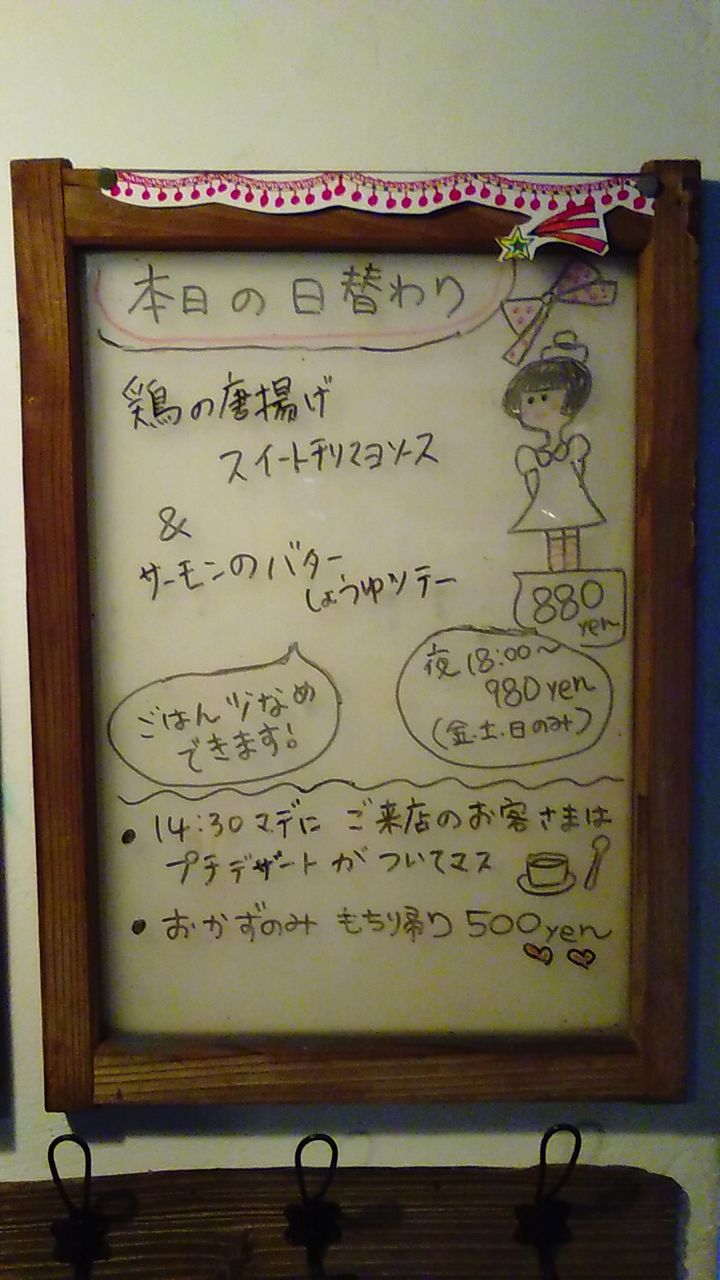 本日の日替わり
鶏の唐揚げ
スイートチリマヨソース
&
サーモンのバター
しょうゆソテー
880
yen
夜 18:00〜
980yen
(金.土.日のみ)
ごはん少なめ
できます!
• 14:30マデに ご来店のお客さまは
プチデザートがついてマス
• おかずのみ もちり帰り 500yen